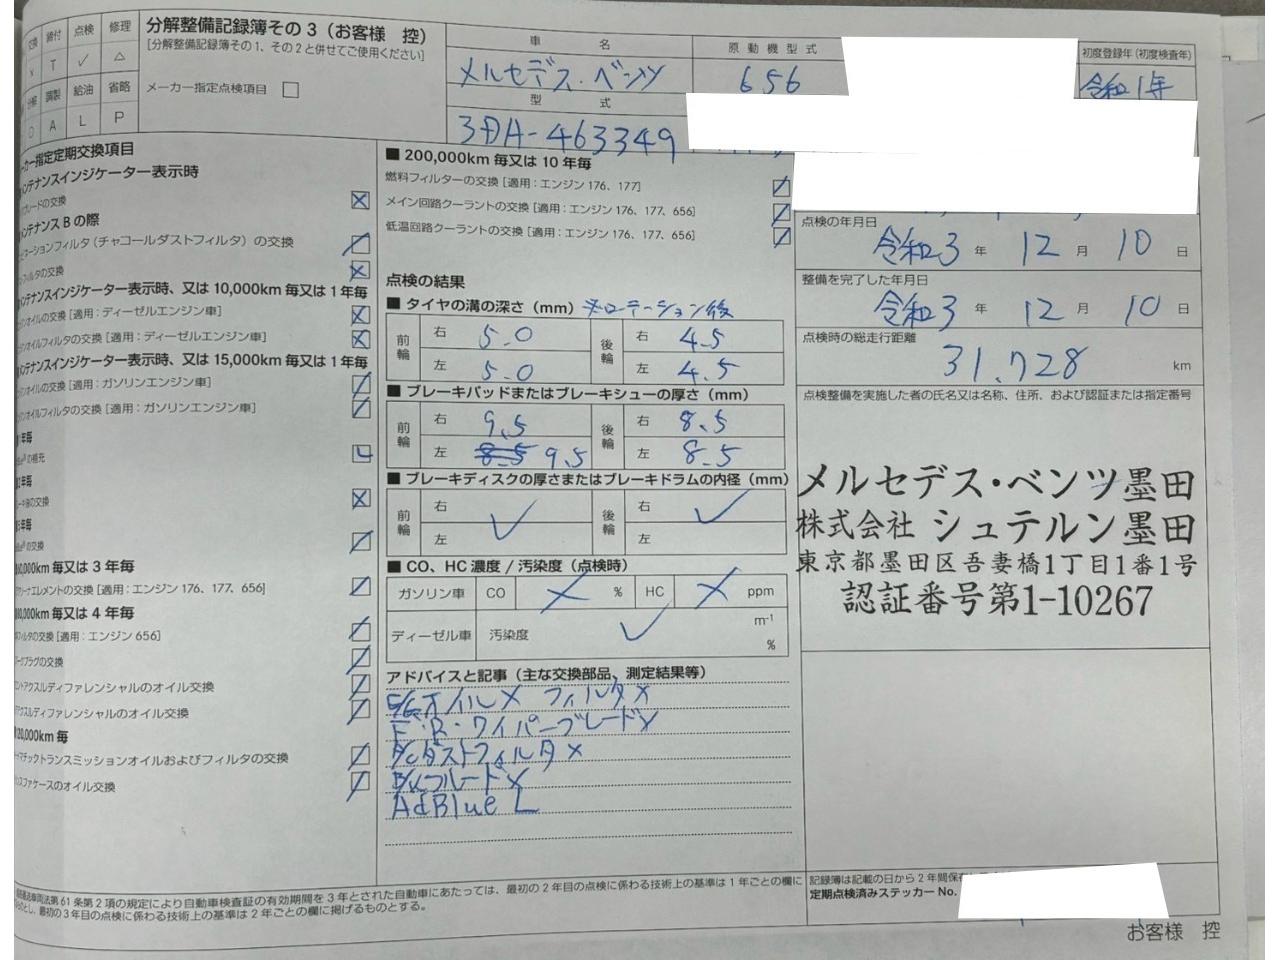 交換 締付 点検 修理
× T ✓ △
分解 調製 給油 省略
A L P
分解整備記録簿その3（お客様　控）
[分解整備記録簿その1、その2と併せてご使用ください]
メーカー指定点検項目 □
車名
メルセデス・ベンツ
型式
3DA-463349
原動機型式
656
初度登録年（初度検査年）
令和1年
ーカー指定定期交換項目
メンテナンスインジケーター表示時
ブレードの交換
メンテナンス B の際
ネーションフィルタ（チャコールダストフィルタ）の交換
フィルタの交換
メンテナンスインジケーター表示時、又は 10,000km 毎又は 1 年毎
ンオイルの交換 [適用：ディーゼルエンジン車]
ンオイルフィルタの交換 [適用：ディーゼルエンジン車]
メンテナンスインジケーター表示時、又は 15,000km 毎又は 1 年毎
ンオイルの交換 [適用：ガソリンエンジン車]
ンオイルフィルタの交換 [適用：ガソリンエンジン車]
年毎
の補充
年毎
の交換
年毎
の交換
0,000km 毎又は 3 年毎
クリーナエレメントの交換 [適用：エンジン 176、177、656]
0,000km 毎又は 4 年毎
フィルタの交換 [適用：エンジン 656]
ークプラグの交換
ントアクスルディファレンシャルのオイル交換
アクスルディファレンシャルのオイル交換
20,000km 毎
マチックトランスミッションオイルおよびフィルタの交換
ンスファケースのオイル交換
■ 200,000km 毎又は 10 年毎
燃料フィルターの交換 [適用：エンジン 176、177]
メイン回路クーラントの交換 [適用：エンジン 176、177、656]
低温回路クーラントの交換 [適用：エンジン 176、177、656]
点検の結果
■ タイヤの溝の深さ（mm） ※ローテーション後
前輪 右 5.0 後輪 右 4.5
左 5.0 左 4.5
■ ブレーキパッドまたはブレーキシューの厚さ（mm）
前輪 右 9.5 後輪 右 8.5
左 8.5 9.5 左 8.5
■ ブレーキディスクの厚さまたはブレーキドラムの内径（mm）
前輪 右 ✓ 後輪 右 ✓
左 左
■ CO、HC 濃度 / 汚染度（点検時）
ガソリン車 CO × % HC × ppm
ディーゼル車 汚染度 ✓ m⁻¹
%
アドバイスと記事（主な交換部品、測定結果等）
E/Gオイル× フィルタ×
F・R・ワイパーブレード×
A/Cダストフィルタ×
B/Kフルード×
AdBlue L
点検の年月日
令和3 年 12 月 10 日
整備を完了した年月日
令和3 年 12 月 10 日
点検時の総走行距離
31.728 km
点検整備を実施した者の氏名又は名称、住所、および認証または指定番号
メルセデス・ベンツ墨田
株式会社 シュテルン墨田
東京都墨田区吾妻橋1丁目1番1号
認証番号第1-10267
路運送車両法第 61 条第 2 項の規定により自動車検査証の有効期間を 3 年とされた自動車にあたっては、最初の 2 年目の点検に係わる技術上の基準は 1 年ごとの欄に
とし、最初の 3 年目の点検に係わる技術上の基準は 2 年ごとの欄に掲げるものとする。
記録簿は記載の日から 2 年間保存
定期点検済みステッカー No.
お客様　控